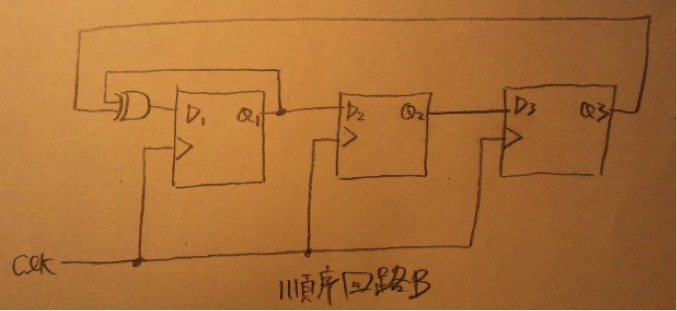 D1 Q1 D2 Q2 D3 Q3
CLK
順序回路B